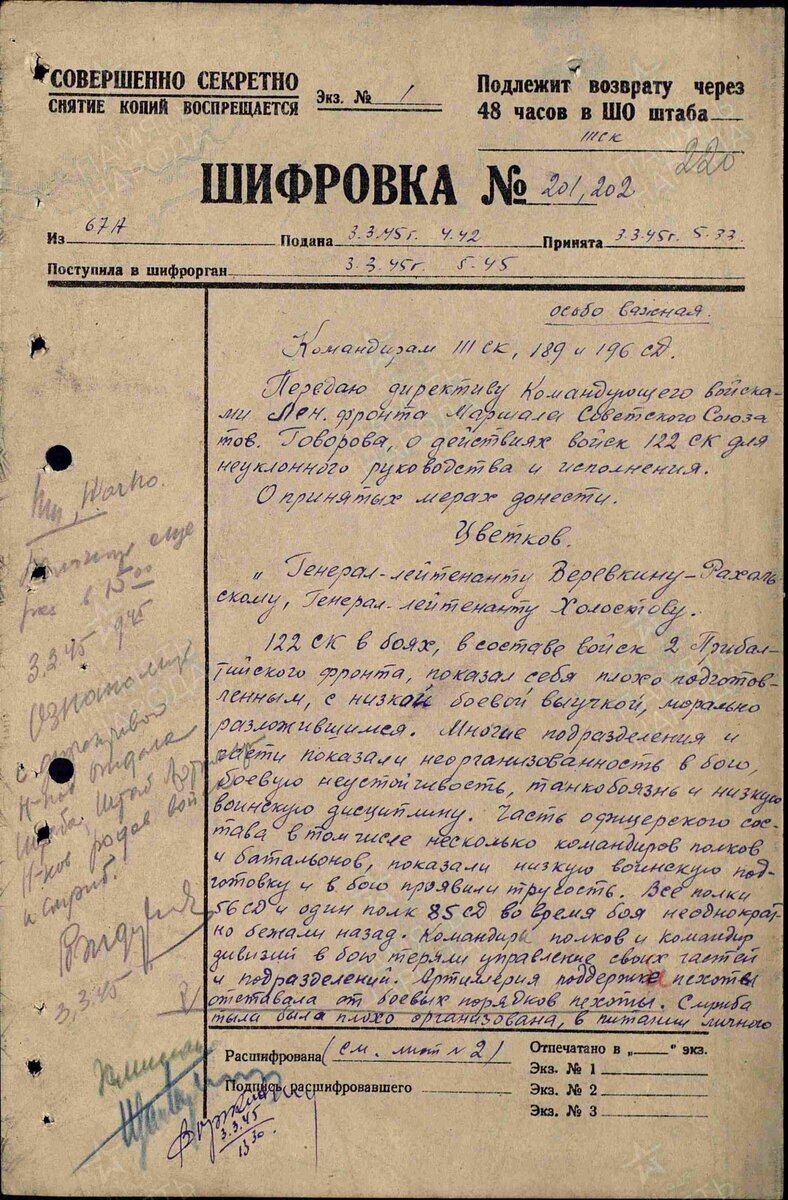 СОВЕРШЕННО СЕКРЕТНО
СНЯТИЕ КОПИЙ ВОСПРЕЩАЕТСЯ
Экз. № 1
Подлежит возврату через
48 часов в ШО штаба
111 ск
220
ШИФРОВКА № 201, 202
Из 67А Подана 3.3.45г. 4.42 Принята 3.3.45г. 5.33
Поступила в шифрорган 3.3.45г 5-45
особо важная.
Командирам 111 СК, 189 и 196 СД.
Передаю директиву Командующего войска-
ми Лен. фронта Маршала Советского Союза
тов. Говорова, о действиях войск 122 СК для
неуклонного руководства и исполнения.
О принятых мерах донести.
Цветков.
„Генерал-лейтенанту Веревкину-Рахаль-
скому, Генерал-лейтенанту Холостову.
122 СК в боях, в составе войск 2 Прибал-
тийского фронта, показал себя плохо подготов-
ленным, с низкой боевой выучкой, морально
разложившимся. Многие подразделения и
части показали неорганизованность в бою,
боевую неустойчивость, танкобоязнь и низкую
воинскую дисциплину. Часть офицерского сос-
тава в том числе несколько командиров полков
и батальонов, показали низкую воинскую под-
готовку и в бою проявили трусость. Все полки
56 СД и один полк 85 СД во время боя неоднократ-
но бежали назад. Командиры полков и командир
дивизий в бою теряли управление своих частей
и подразделений. Артиллерия поддержки пехоты
отставала от боевых порядков пехоты. Служба
тыла была плохо организована, в питании личного
еще
в 15.00
3.3.45 9.45
Ознакомить
с
н-ков отдела
штаба, штаб
Н-ков родов войск
и служб.
3.3.45
Расшифрована (см. лист № 2)
Подпись расшифровавшего
3.3.45
13.30
Отпечатано в „ “ экз.
Экз. № 1
Экз. № 2
Экз. № 3